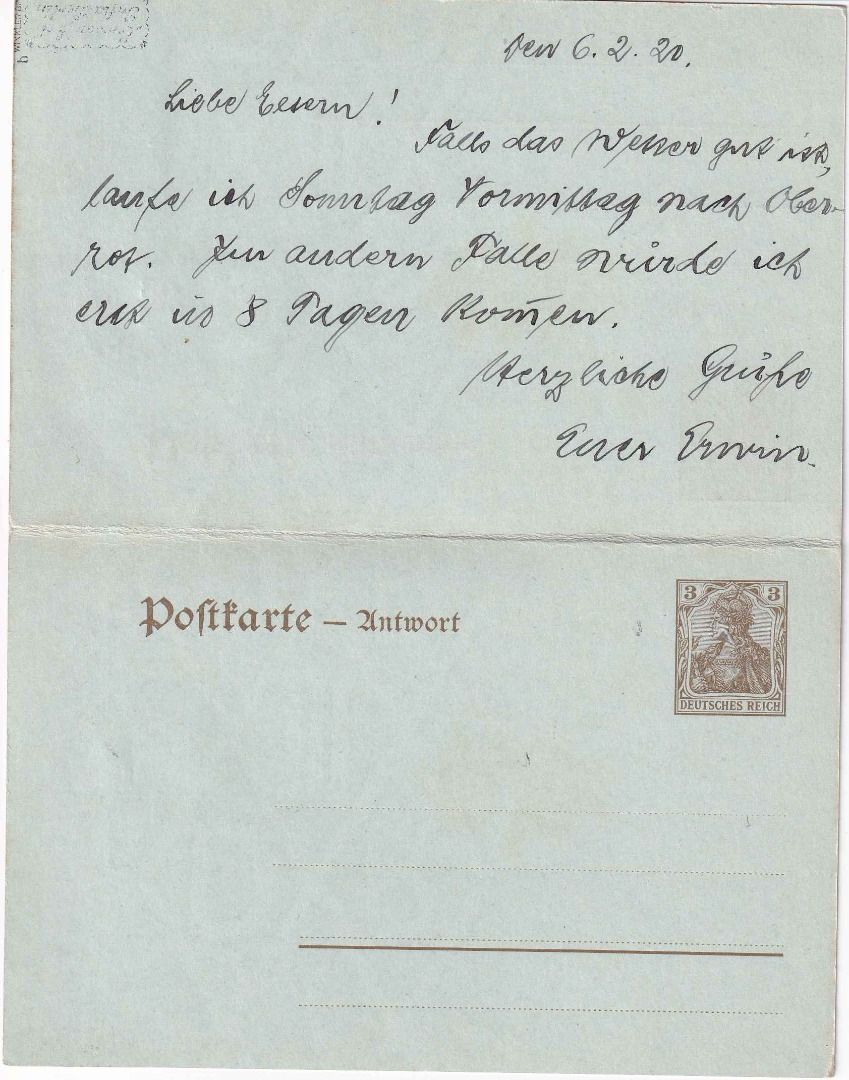 Den 6. 2. 20.
Liebe Eltern!
Falls das Wetter gut ist,
laufe ich Sonntag Vormittag nach Ober-
rot. Im andern Falle würde ich
erst in 8 Tagen kom̅en.
Herzliche Grüße
Euer Erwin.
Postkarte – Antwort
3 3
DEUTSCHES REICH